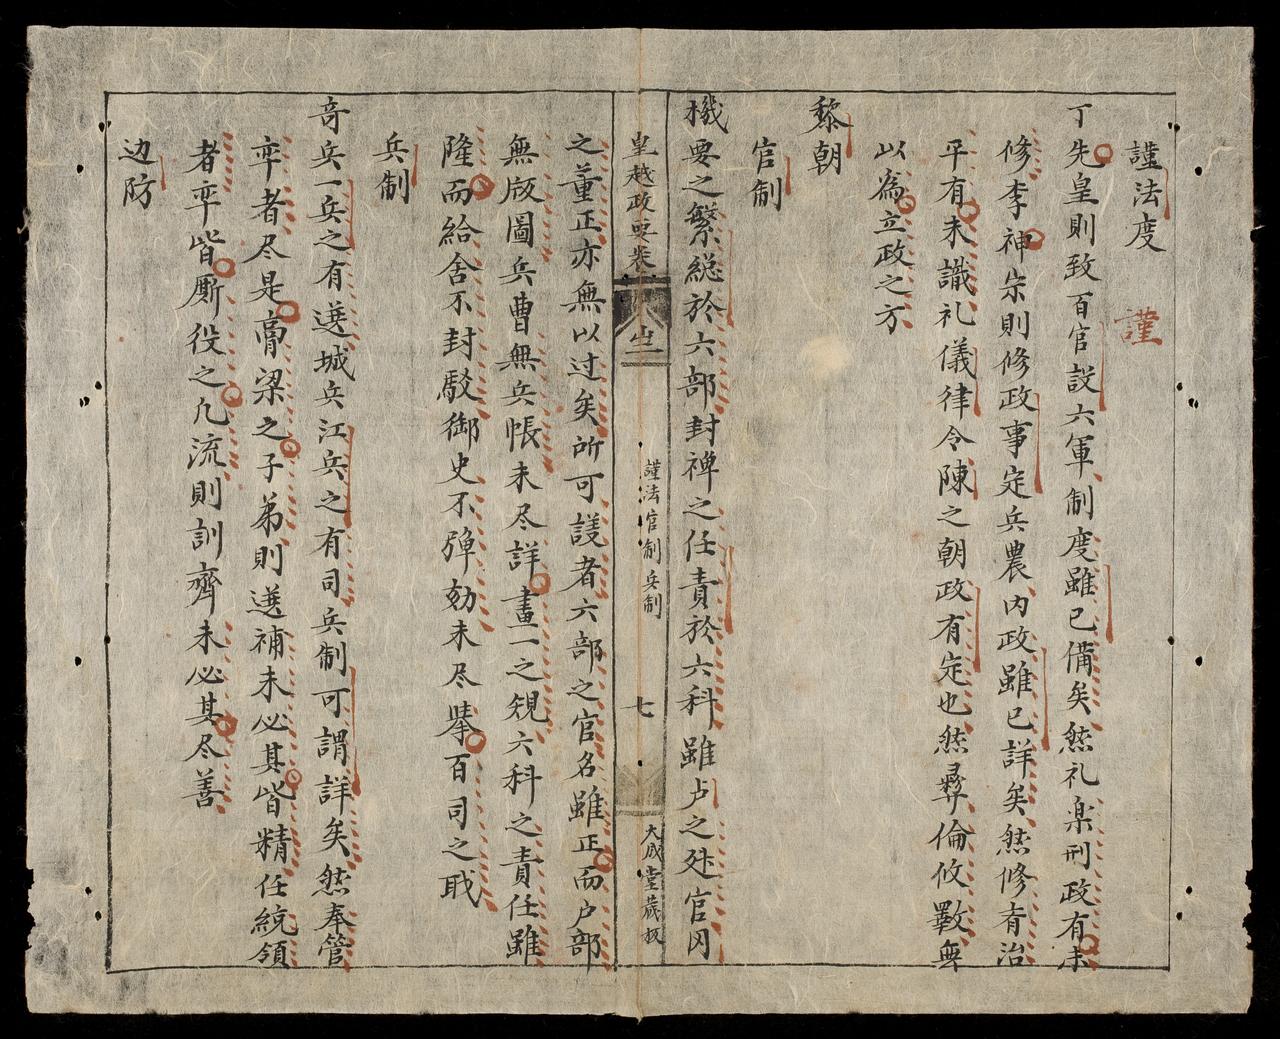 謹法度
謹
丁先皇則致百官設六軍制度雖已備矣然礼楽刑政有未
修李神宗則修政事定兵農内政雖已詳矣然修肴治
平有未識礼儀律令陳之朝政有定也然彛倫攸斁無
以為立政之方
黎朝
官制
機要之繁総於六部封禅之任責於六科雖卢之殊官冈
皇越政要卷
謹法官制兵制
七
大成堂蔵板
之董正亦無以过矣所可議者六部之官名雖正而户部
無版圖兵曹無兵帳未尽詳畫一之規六科之責任雖
隆而給舍不封駁御史不弾効未尽舉百司之職
兵制
竒兵一兵之有選城兵江兵之有司兵制可謂詳矣然奉管
卒者尽是膏梁之子弟則選補未必其皆精任統領
者卒皆厮役之凡流則訓齊未必其尽善
边防